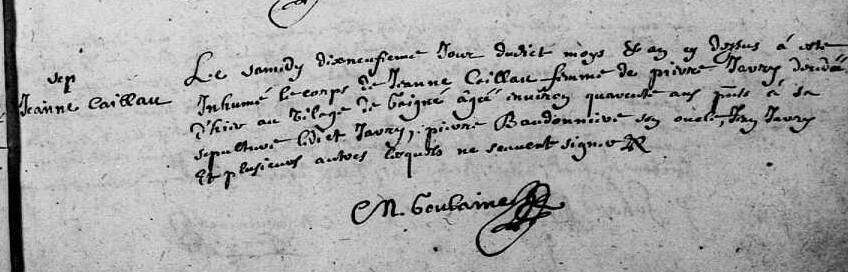 sep
Jeanne Caillau
Le samedy dixneufieme Jour dudict moys & an cy dessus à esté
Inhumé le corps de Jeanne Caillau femme de pierre Javry decedée
d'hier au vilage de Gaigné âgée inviron quarente ans pnts à sa
sepulture ledict Javry, pierre Baudonniere son oncle, Jean Javry
Et plusieurs autres lesquels ne scavent signer
M. Goulaine